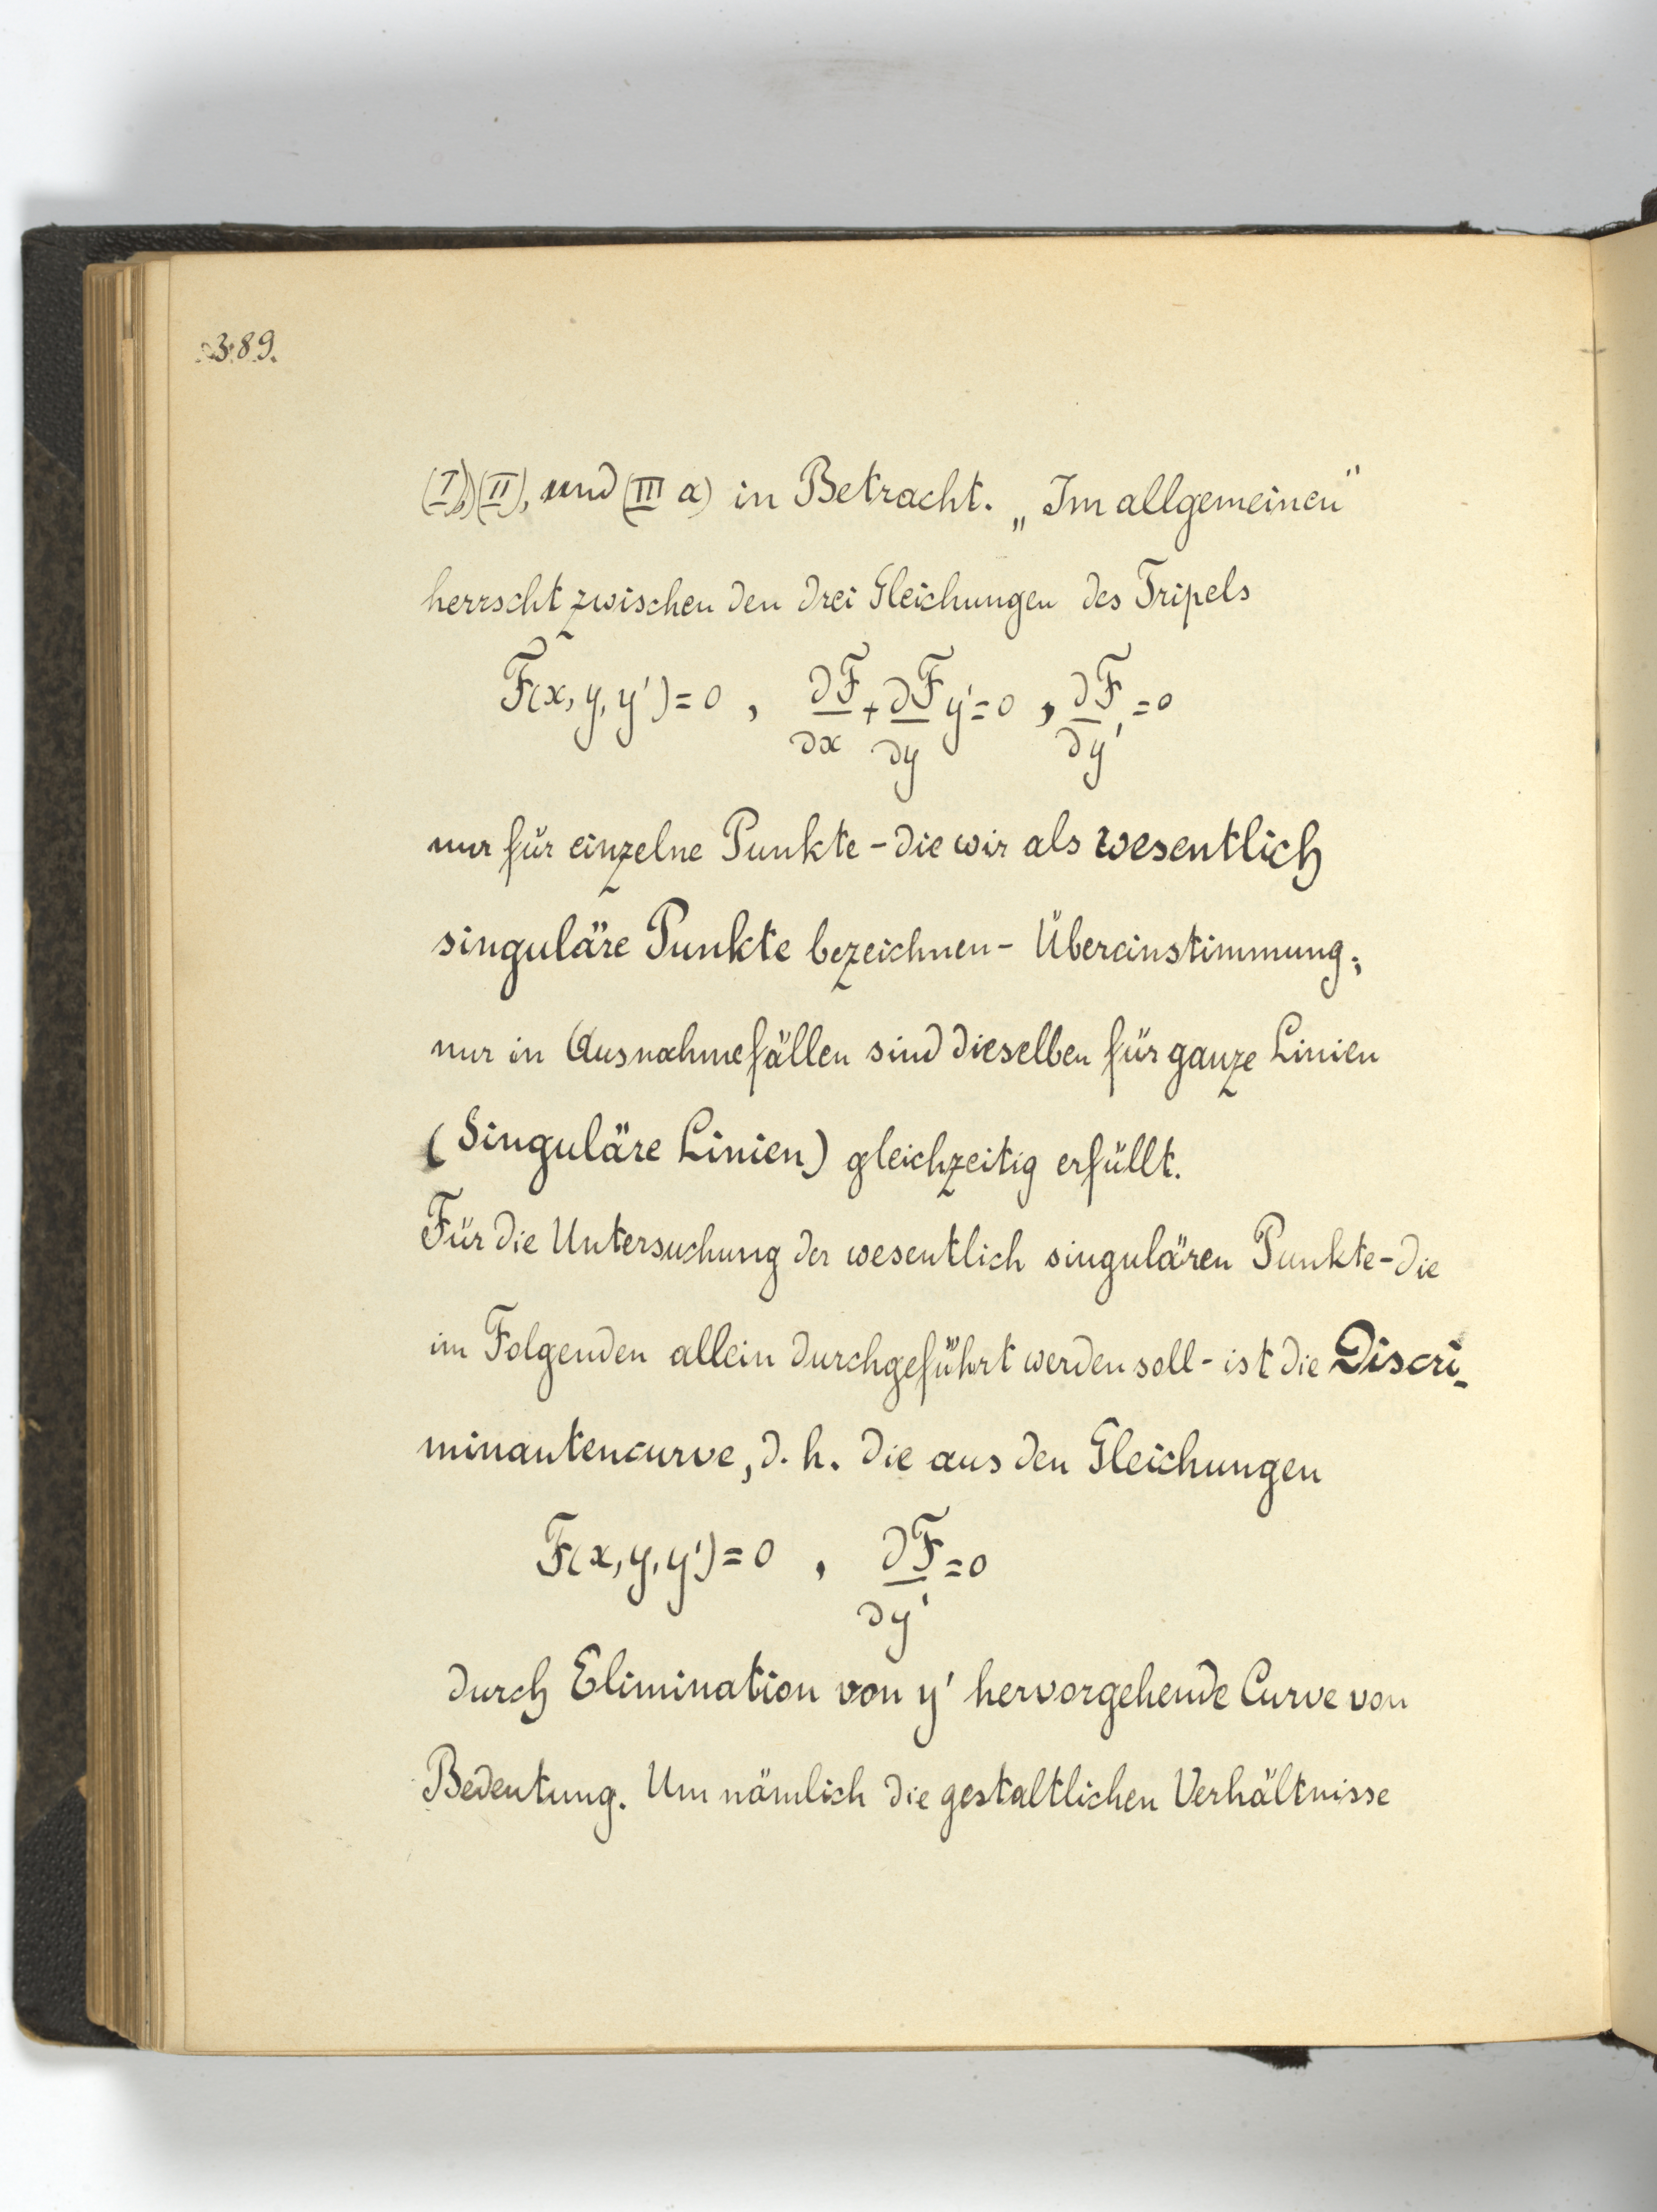 389.
(I), (II), und (III a) in Betracht. „Im allgemeinen“
herrscht zwischen den drei Gleichungen des Tripels
F(x, y, y') = 0 , ∂F/∂x + ∂F/∂y y' = 0 , ∂F/∂y' = 0
nur für einzelne Punkte - die wir als wesentlich
singuläre Punkte bezeichnen - Übereinstimmung;
nur in Ausnahmefällen sind dieselben für ganze Linien
(Singuläre Linien) gleichzeitig erfüllt.
Für die Untersuchung der wesentlich singulären Punkte - die
im Folgenden allein durchgeführt werden soll - ist die Discri-
minantencurve, d. h. die aus den Gleichungen
F(x, y, y') = 0 , ∂F/∂y' = 0
durch Elimination von y' hervorgehende Curve von
Bedeutung. Um nämlich die gestaltlichen Verhältnisse